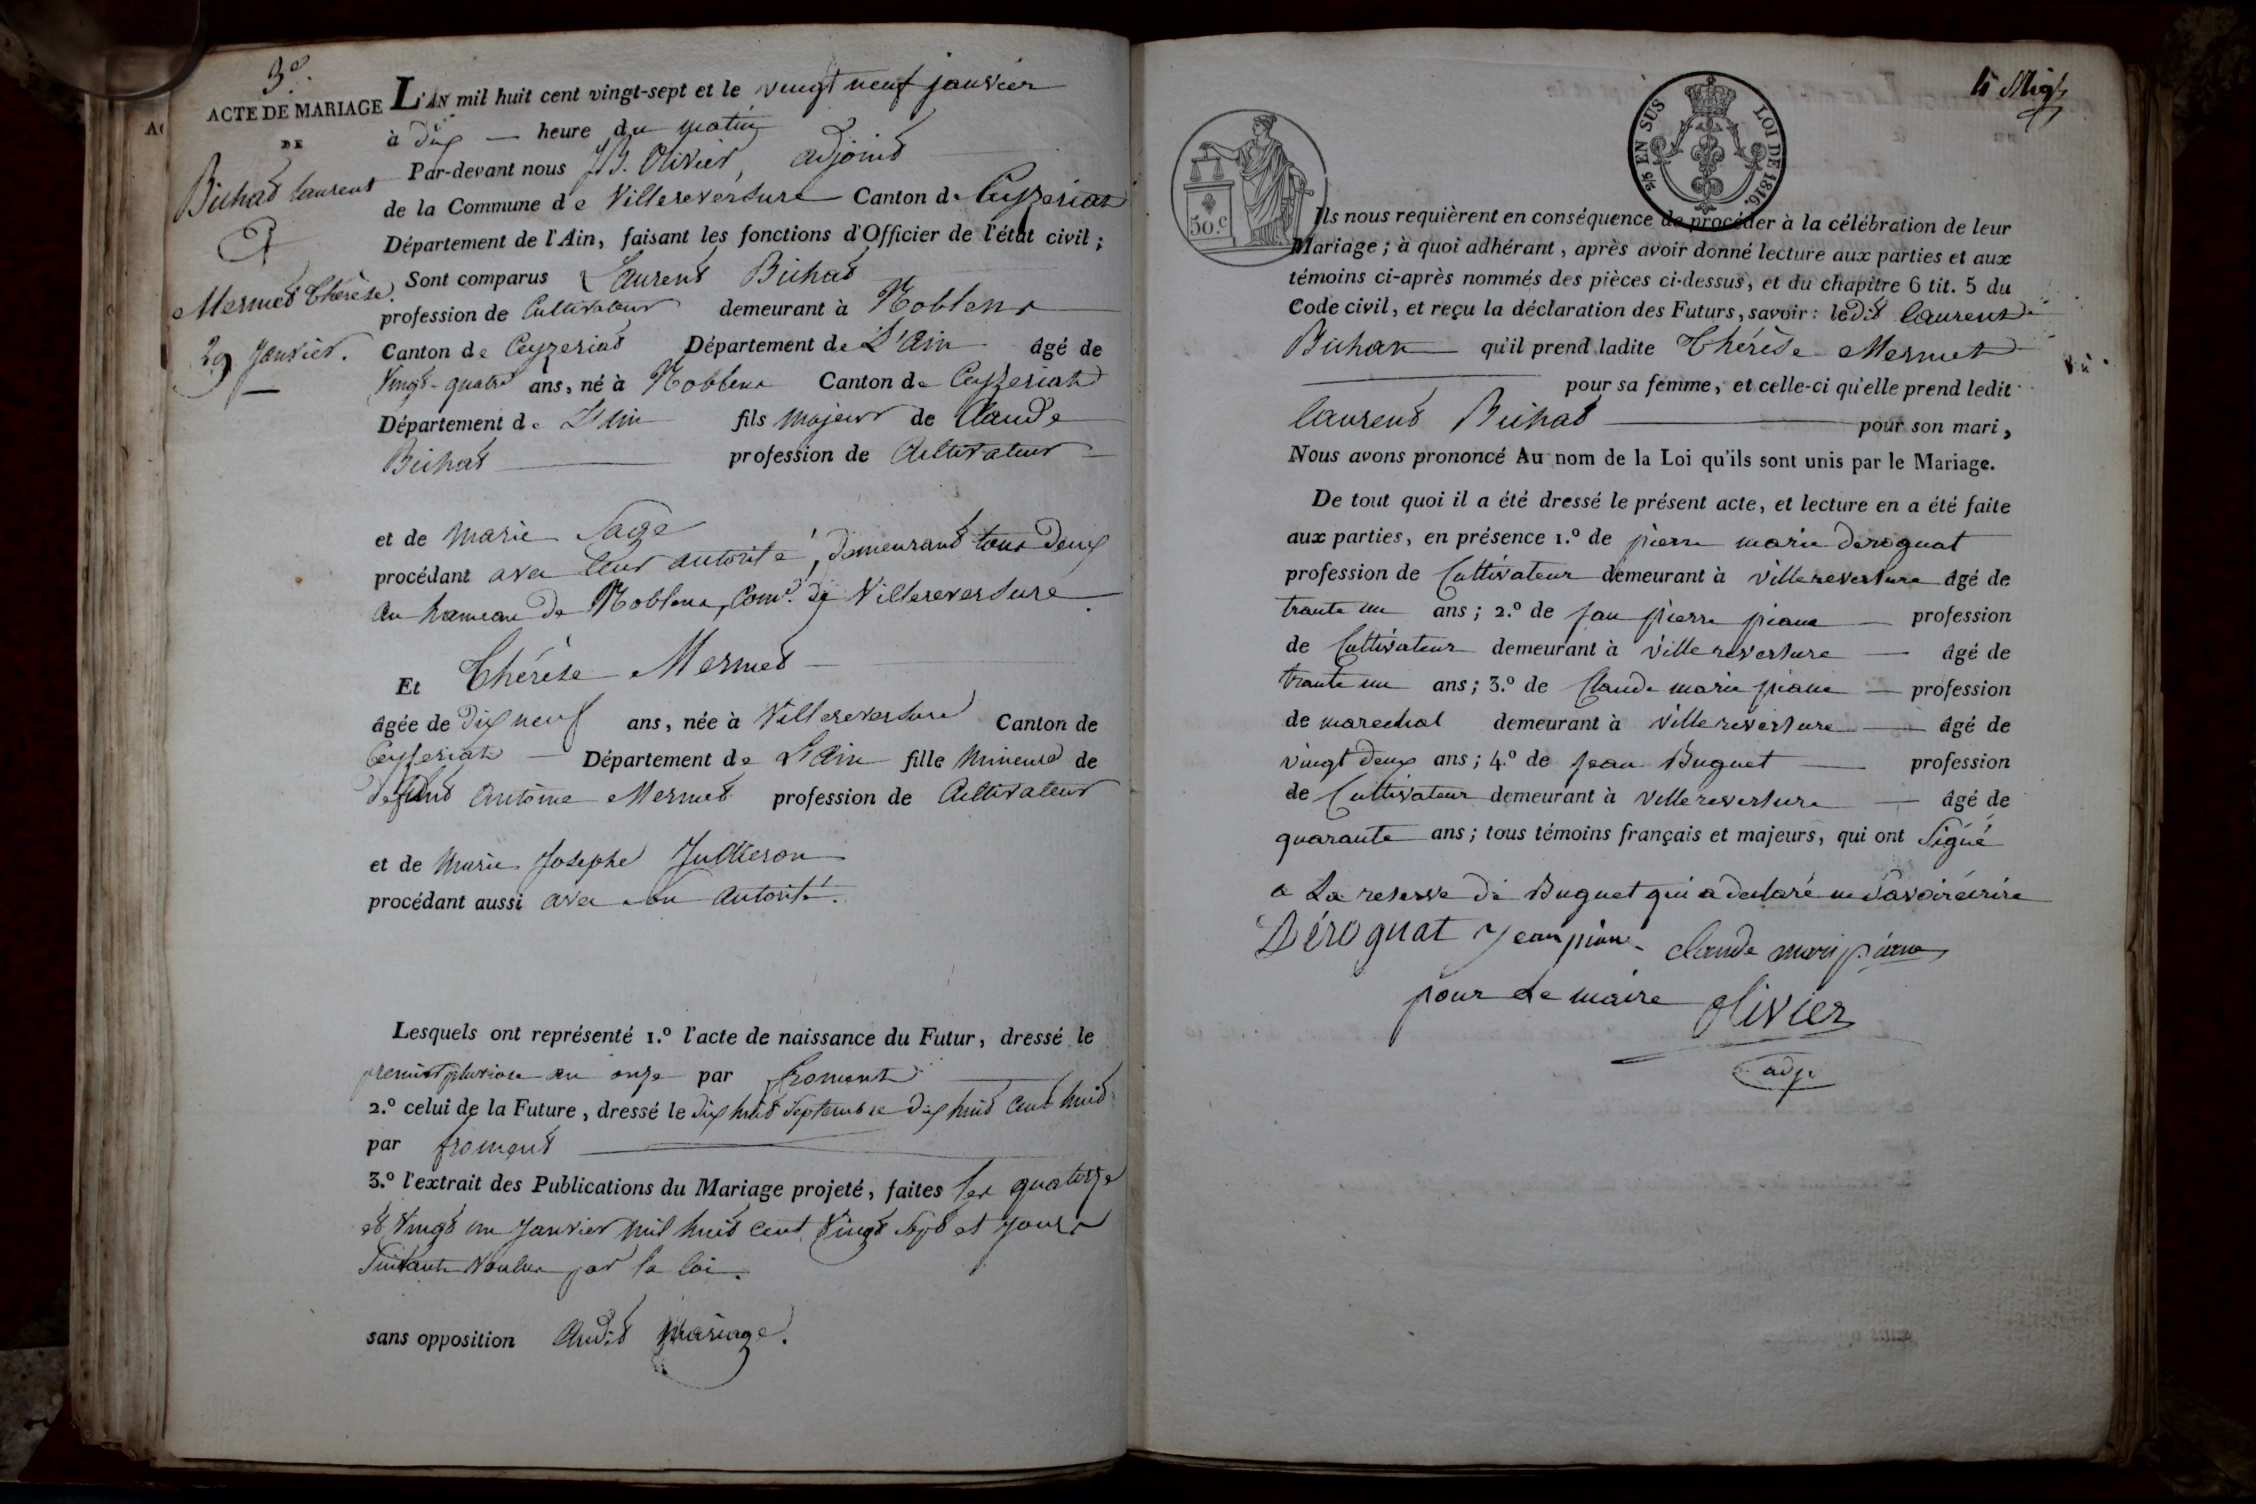 3e.
ACTE DE MARIAGE
DE
Bichat laurent
Et
Mermet thérèse.
29 Janvier.
L'AN mil huit cent vingt-sept et le vingt neuf janvier
à dix — heure du matin
Par-devant nous J. B. Olivier, adjoint
de la Commune de Villereversure Canton de Ceyzeriat
Département de l'Ain, faisant les fonctions d'Officier de l'état civil ;
Sont comparus Laurent Bichat
profession de Cultivateur demeurant à Noblens
Canton de Ceyzeriat Département de L'ain âgé de
Vingt-quatre ans, né à Noblens Canton de Ceyzeriat
Département de L'ain fils majeur de Claude
Bichat profession de Cultivateur
et de Marie Sage
procédant avec leur autorité, demeurant tous deux
au hameau de Noblens, Com.e de Villereversure
Et Thérèse Mermet
âgée de dix neuf ans, née à Villereversure Canton de
Ceyzeriat Département de L'ain fille mineure de
défunt Antoine Mermet profession de Cultivateur
et de Marie Josephe Jullieron
procédant aussi avec son autorité.
Lesquels ont représenté 1.º l'acte de naissance du Futur, dressé le
premier pluviose an onze par froment
2.º celui de la Future, dressé le dix huit Septembre dix huit cent huit
par froment
3.º l'extrait des Publications du Mariage projeté, faites les quatorze
et Vingt un Janvier mil huit cent Vingt Sept et jours
Suivants Voulus par la loi.
sans opposition audit mariage.
50.C
2/5 EN SUS LOI DE 1816.
Ils nous requièrent en conséquence de procéder à la célébration de leur
Mariage ; à quoi adhérant, après avoir donné lecture aux parties et aux
témoins ci-après nommés des pièces ci-dessus, et du chapitre 6 tit. 5 du
Code civil, et reçu la déclaration des Futurs, savoir : ledit laurent
Bichat qu'il prend ladite Thérèse Mermet
pour sa femme, et celle-ci qu'elle prend ledit
laurent Bichat pour son mari,
Nous avons prononcé Au nom de la Loi qu'ils sont unis par le Mariage.
De tout quoi il a été dressé le présent acte, et lecture en a été faite
aux parties, en présence 1.º de pierre marie deroguat
profession de Cultivateur demeurant à villereversure âgé de
trante un ans ; 2.º de jean pierre piane profession
de Cultivateur demeurant à villereversure âgé de
trante un ans ; 3.º de Claude marie piane profession
de marechal demeurant à villereversure âgé de
vingt deux ans ; 4.º de jean Buguet profession
de Cultivateur demeurant à villereversure âgé de
quarante ans ; tous témoins français et majeurs, qui ont Signé
a La reserve de Buguet qui a declaré ne Savoir écrire
Déroguat Jean piane Claude marie piane
pour Le maire Olivier
adj.